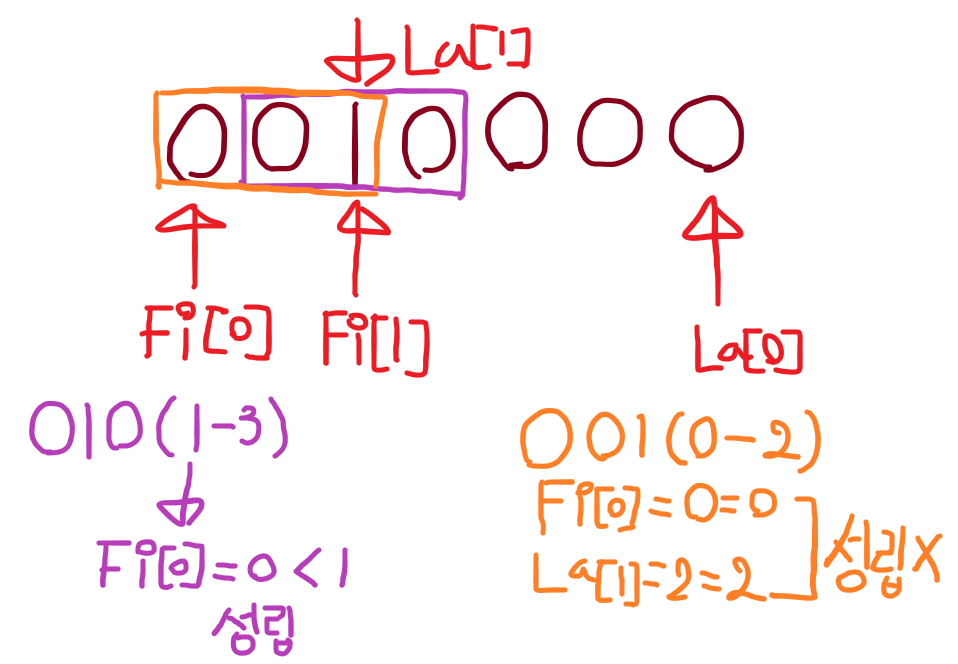 La[1]
0010000
Fi[0] Fi[1] La[0]
010(1-3)
Fi[0]=0<1
성립
001(0-2)
Fi[0]=0=0
La[1]=2=2
성립X